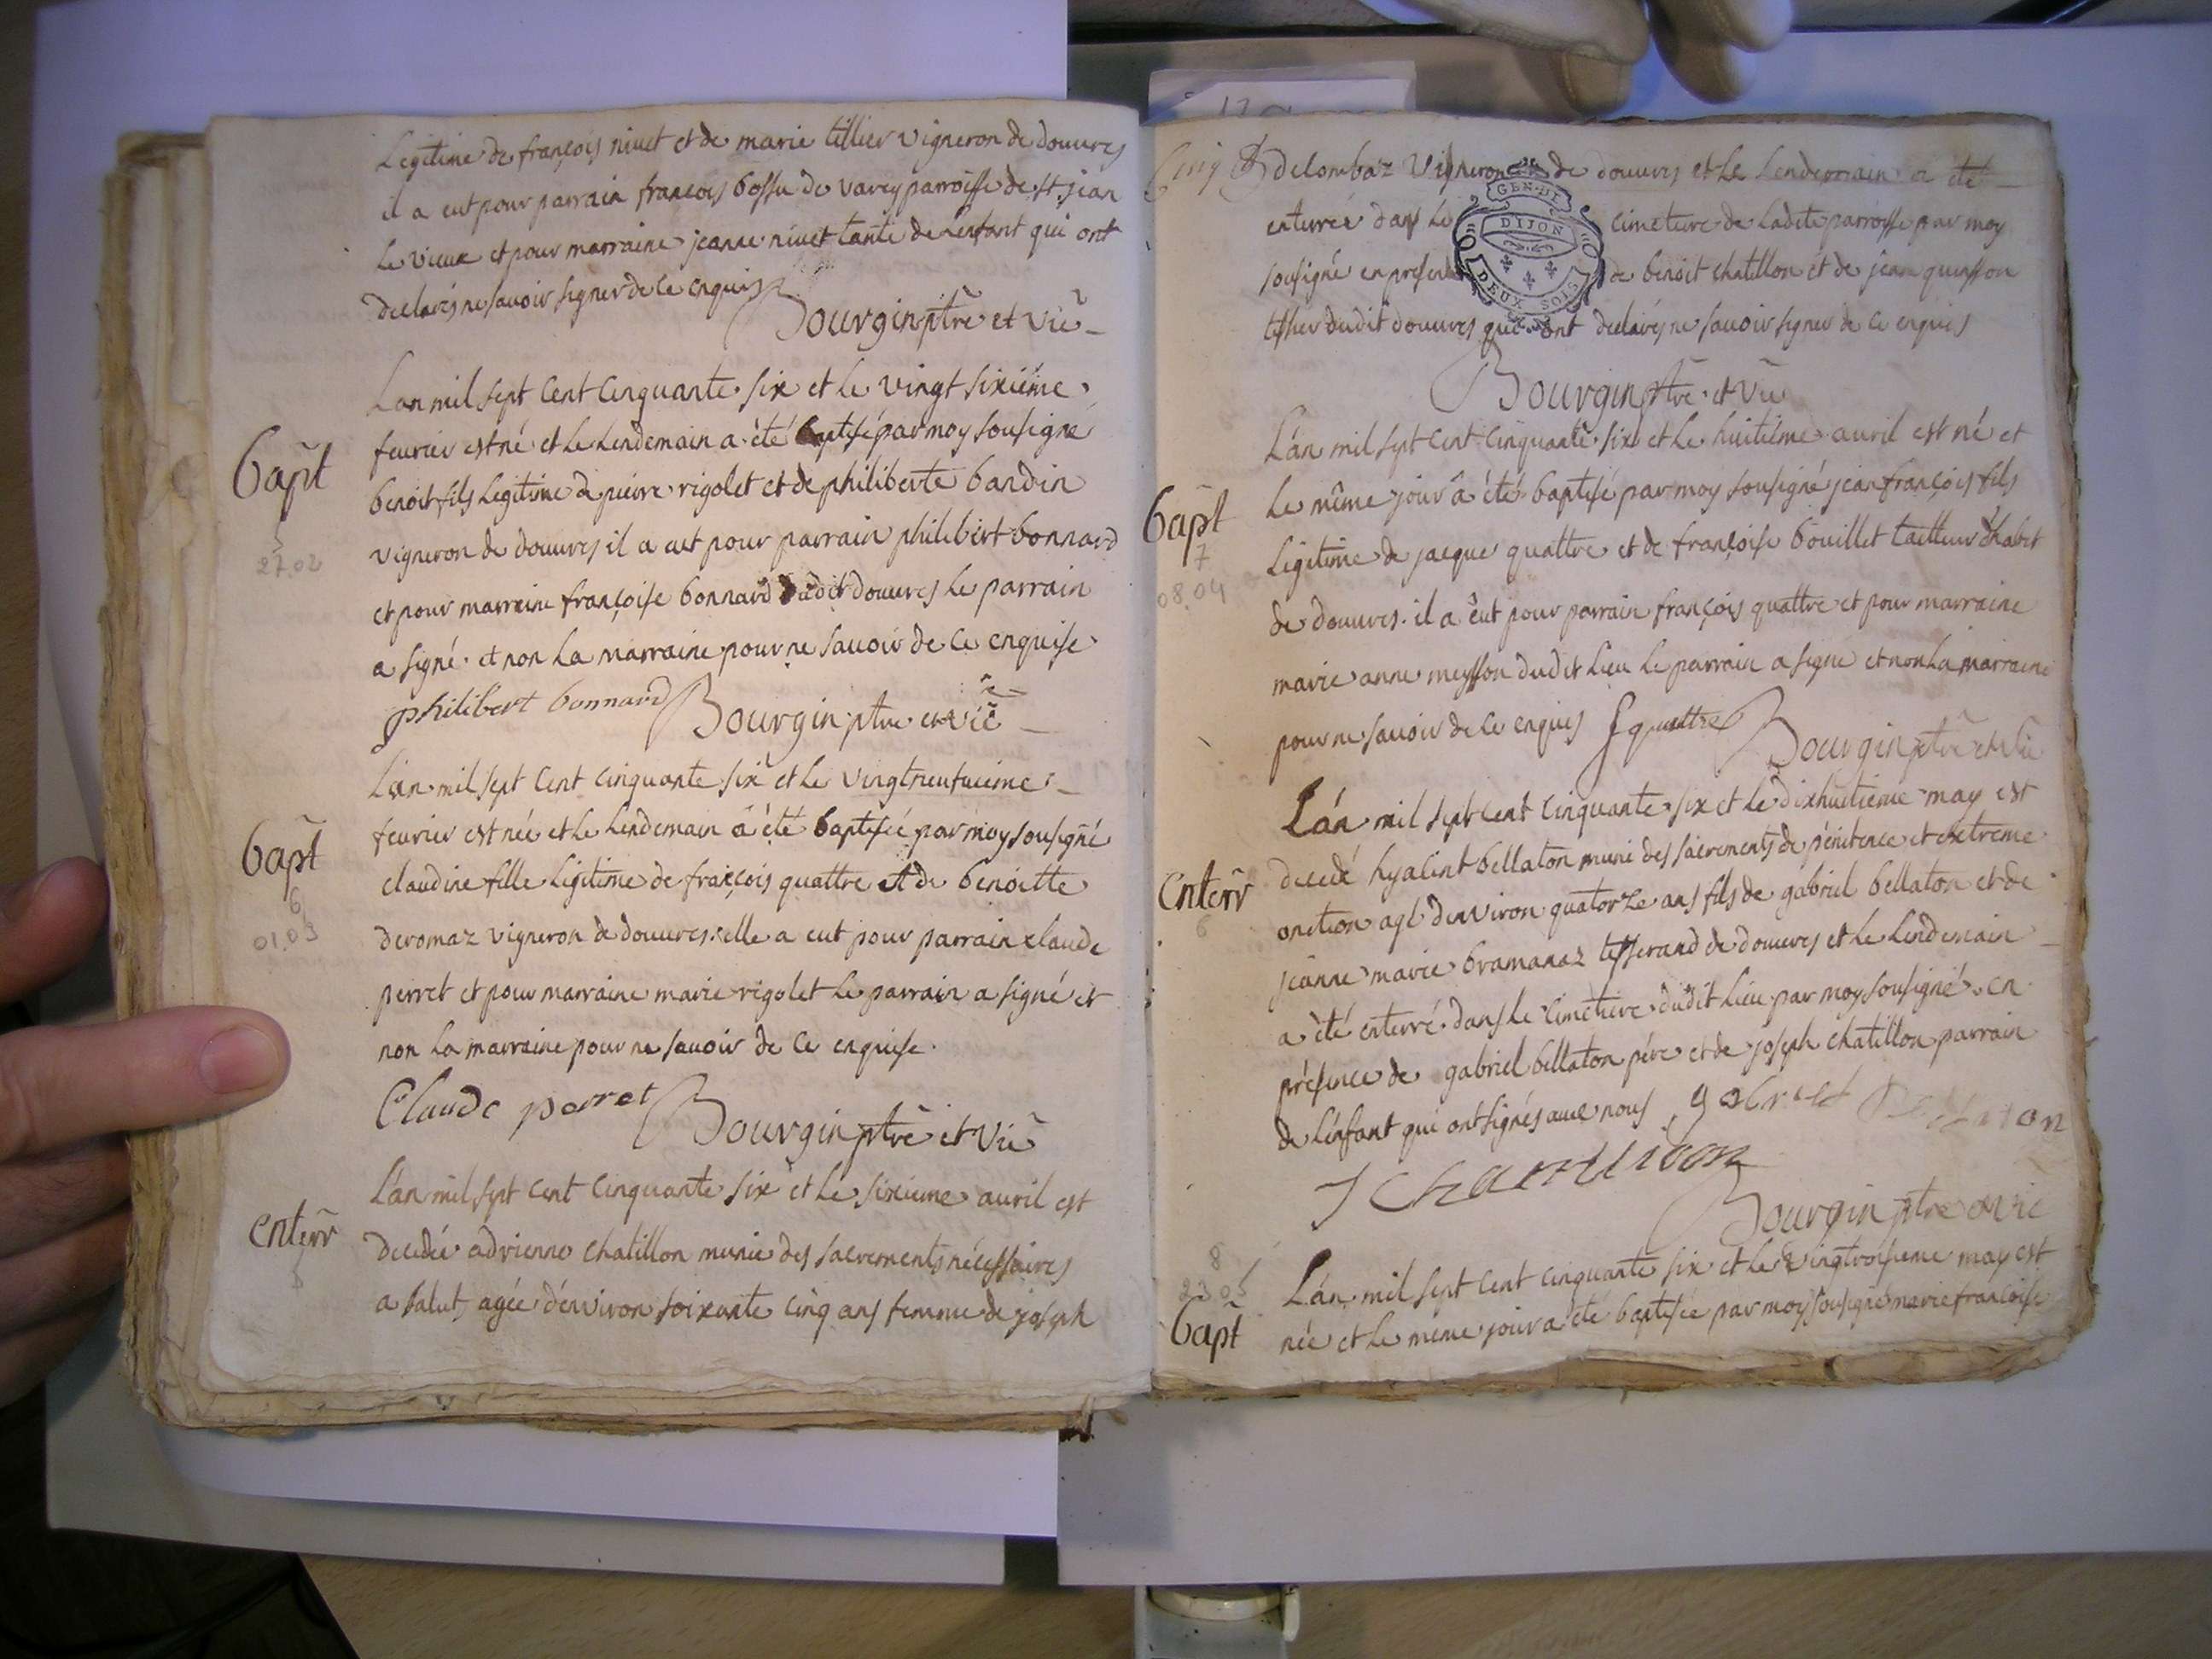 Legitime de françois nivet et de marie tillier vigneron de douvres
il a eut pour parrain françois bossu de varey parroisse de st jean
le vieux et pour marraine jeanne nivet tante de l'enfant qui ont
declarés ne savoir signer de ce enquis
Bourgin ptre et vic
L'an mil sept cent cinquante six et le vingt sixiéme
bapt
fevrier est né et le lendemain a été baptisé par moy sousigné
benoit fils legitime de pierre rigolet et de philiberte bardin
5
27.02
vigneron de douvres il a eut pour parrain philibert bonnard
et pour marraine françoise bonnard dudit douvres le parrain
a signé et non la marraine pour ne savoir de ce enquise
philibert bonnard Bourgin ptre et vic
L'an mil sept cent cinquante six et le vingt neufvieme
bapt
fevrier est née et le lendemain a été baptisée par moy sousigné
claudine fille legitime de françois quattre et de benoitte
6
01.03
deromaz vigneron de douvres elle a eut pour parrain claude
perret et pour marraine marie rigolet le parrain a signé et
non la marraine pour ne savoir de ce enquise
Claude perret Bourgin ptre et vic
L'an mil sept cent cinquante six et le sixieme avril est
enterr
5
decedée adrienne chatillon munie des sacrements nécessaires
a salut, agée d'environ soixante cinq ans femme de joseph
Cinq
delombaz vigneron de douvres et le lendemain a été
GEN. DI
DIJON
DEUX SOLS
enterrée dans le cimetiere de ladite parroisse par moy
sousigné en presence de benoit chatillon et de jean quinson
tissier dudit douvres qui ont declarés ne savoir signer de ce enquis
Bourgin ptre et vic
L'an mil sept cent cinquante six et le huitiéme avril est né et
bapt
7
08.04
le même jour a été baptisé par moy sousigné jean françois fils
legitime de jacque quattre et de françoise bouillet tailleur d'habit
de douvres. il a eut pour parrain françois quattre et pour marraine
marie anne meysson dudit lieu le parrain a signé et non la marraine
pour ne savoir de ce enquis f quattre Bourgin ptre et vic
L'an mil sept cent cinquante six et le dixhuitieme may est
enterr
6
decedé hyacint bellaton muni des sacrements de pénitence et extreme
onction agé d'environ quatorze ans fils de gabriel bellaton et de
jeanne marie bramanaz tisserand de douvres et le lendemain
a été enterré dans le cimetiere dudit lieu par moy sousigné en
présence de gabriel bellaton pére et de joseph chatillon parrain
de l'enfant qui ont signés avec nous gabriel bellaton
J Chatillion
Bourgin ptre et vic
8
23 05
bapt
L'an mil sept cent cinquante six et le vingtroisieme may est
née et le même jour a été baptisée par moy sousigné marie françoise